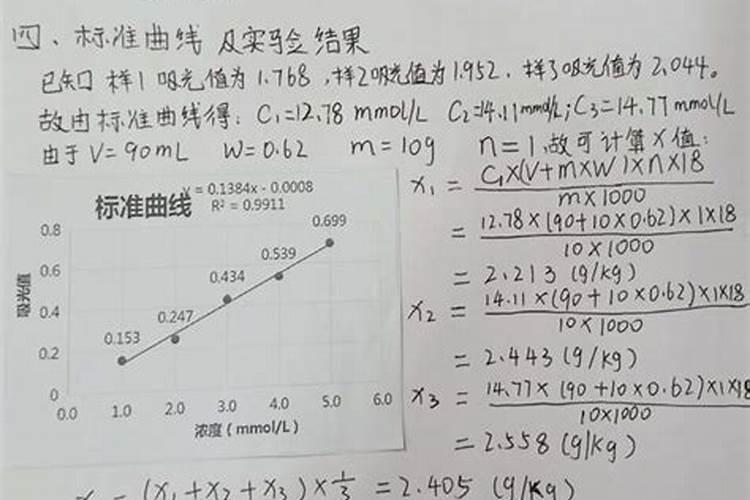 四、标准曲线及实验结果
已知 样1吸光值为1.768，样2吸光值为1.952，样3吸光值为2.044。
故由标准曲线得：C₁=12.78 mmol/L C₂=14.11mmol/L；C₃=14.77mmol/L
由于 V=90mL W=0.62 m=10g n=1，故可计算X值：
标准曲线
y = 0.1384x - 0.0008
R² = 0.9911
0.8
0.6
0.4
0.2
0
吸光值
0.153
0.247
0.434
0.539
0.699
0.0 1.0 2.0 3.0 4.0 5.0 6.0
浓度（mmol/L）
x₁ = C₁×(V+m×W)×n×18
m×1000
= 12.78×(90+10×0.62)×1×18
10×1000
= 2.213 (g/kg)
x₂ = 14.11×(90+10×0.62)×1×18
10×1000
= 2.443 (g/kg)
x₃ = 14.77×(90+10×0.62)×1×18
10×1000
= 2.558 (g/kg)
= (x₁+x₂+x₃)×1/3 = 2.405 (g/kg)